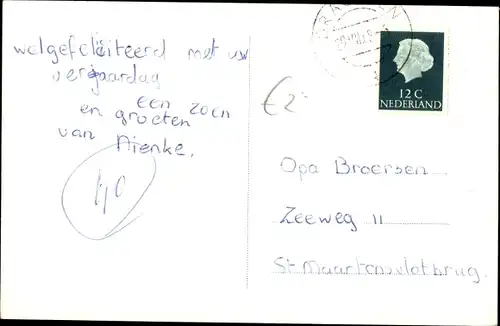 welgefeliciteerd met uw
verjaardag
en een zoen
groeten
van Nienke.
40
€ 2-
12 C
NEDERLAND
Opa Broersen
Zeeweg 11
St Maartensvlotbrug.